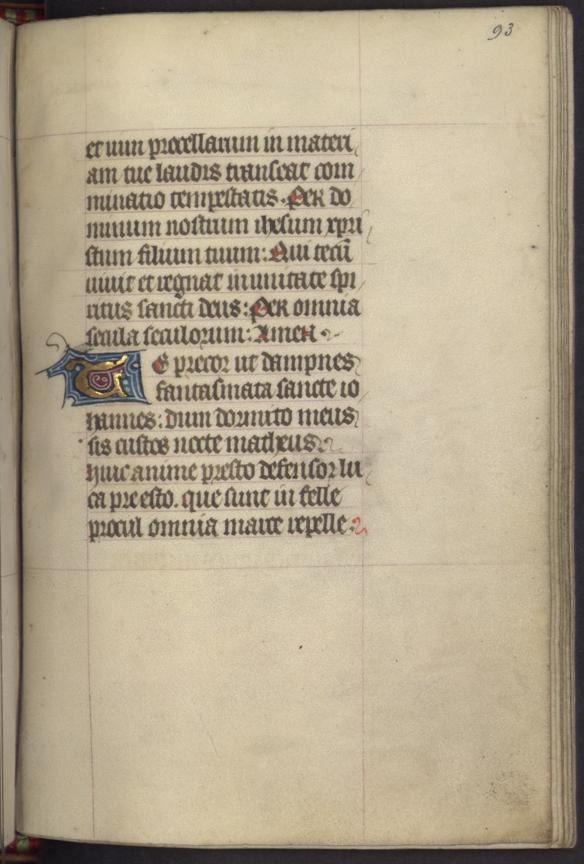 93
et uim procellarum in materi
am tue laudis transeat com
minatio tempestatis. Per do
minum nostrum ihesum xpri
stum filium tuum: Qui tecū
uiuit et regnat in unitate spi
ritus sancti deus: Per omnia
secula seculorum: Amen
TE precor ut dampnes
fantasmata sancte io
hannes: dum dormito meus
sis custos nocte matheus.
huic anime presto defensor lu
ca pre esto. que sunt in felle
procul omnia marce repelle.